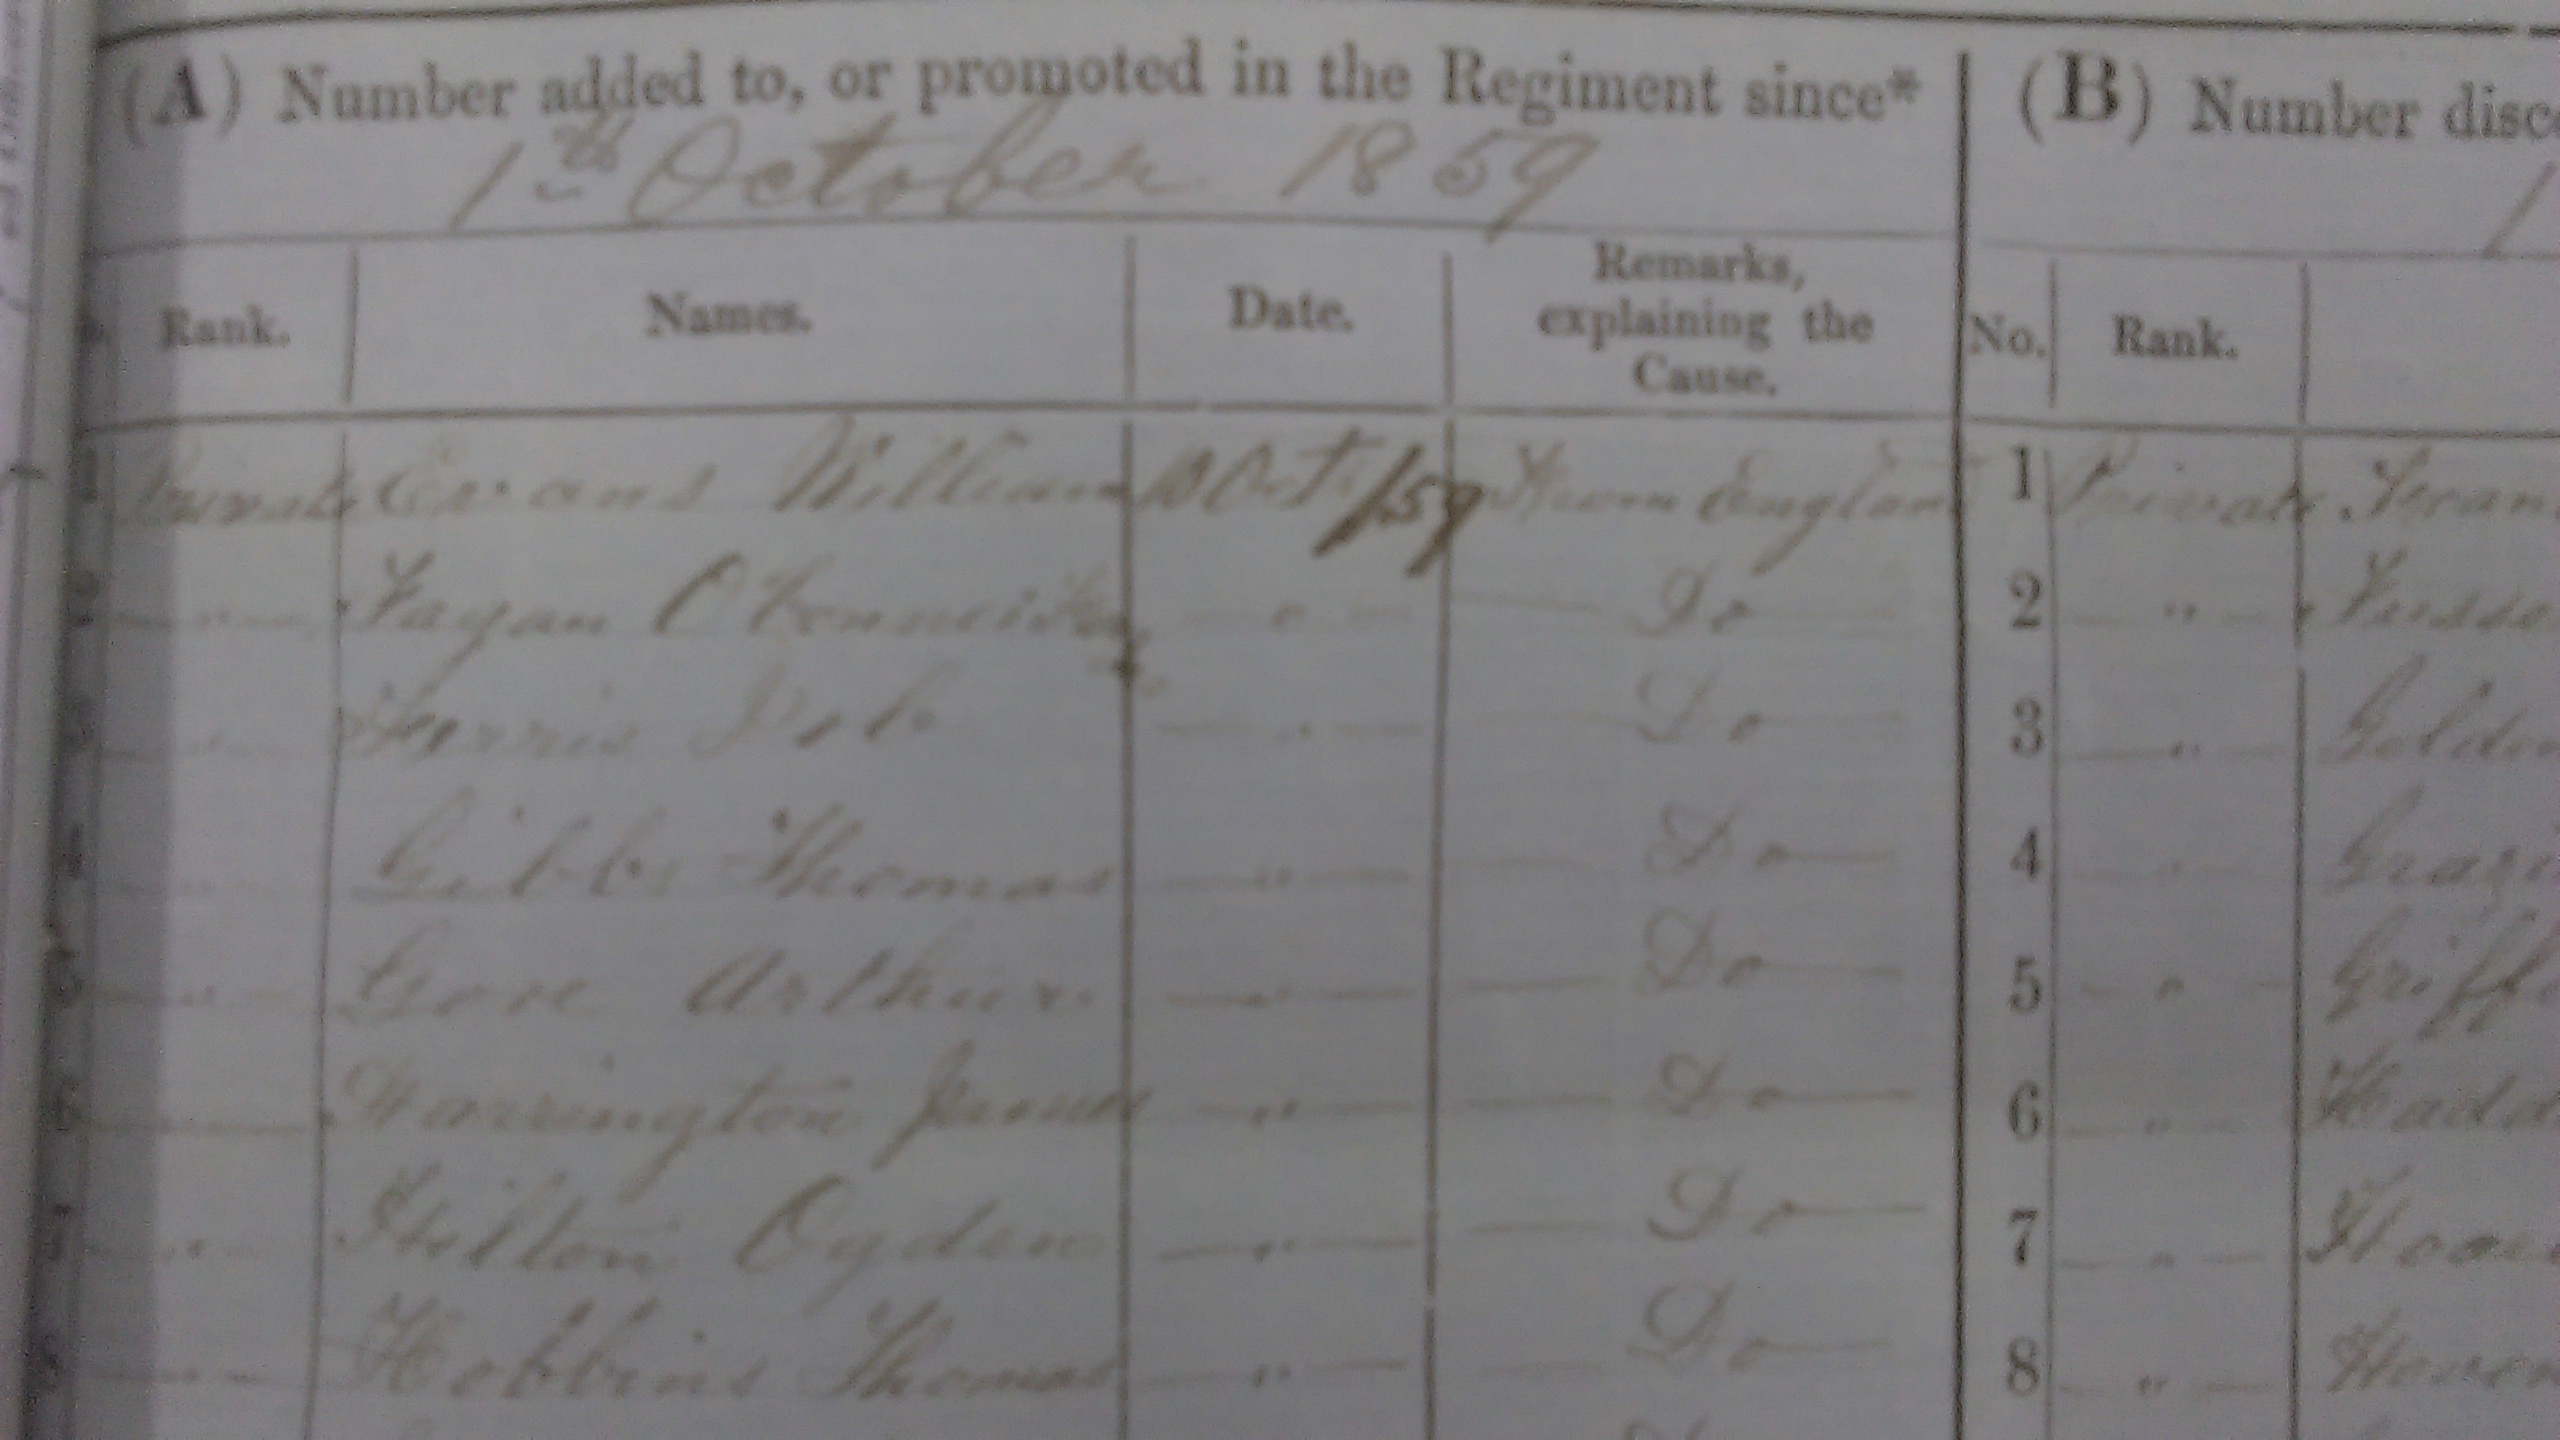 (A) Number added to, or promoted in the Regiment since*
1th October 1859
Rank. Names. Date. Remarks, explaining the Cause.
1 Private Evans William 10 Oct /59 From England
2 " Fagan " Do
3 " Ferris Job " Do
4 Gibbs Thomas " Do
5 " Gore Arthur " Do
6 Harrington James " Do
7 " Hilton Ogden " Do
8 " Hobbins Thomas " Do
(B) Number disc
1
No. Rank.
1 Private
2 "
3 "
4 "
5 " Griff
6 " Hadd
7 "
8 "